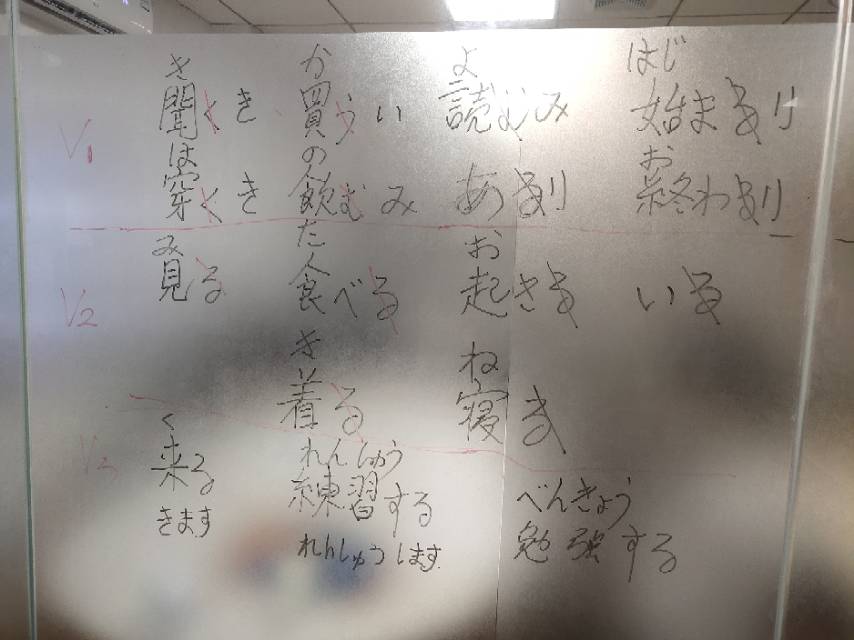 き か よ はじ
V1 聞くき 買うい 読むみ 始まるり
は の お
穿くき 飲むみ あるり 終わるり
み た お
V2 見る 食べる 起きる いる
き ね
着る 寝る
く れんしゅう べんきょう
V3 来る 練習する 勉強する
きます れんしゅうします